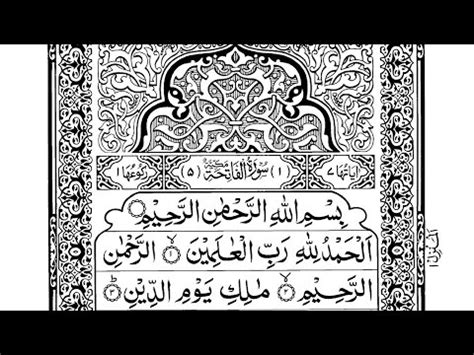 اٰیَاتُهَا ٧ (١) سُوْرَةُ الْفَاتِحَةِ مَكِّيَّةٌ (٥) رُكُوْعُهَا ١
بِسْمِ اللّٰهِ الرَّحْمٰنِ الرَّحِيْمِ
اَلْحَمْدُ لِلّٰهِ رَبِّ الْعٰلَمِيْنَ ١ الرَّحْمٰنِ
الرَّحِيْمِ ٢ مٰلِكِ يَوْمِ الدِّيْنِ ٣ ط